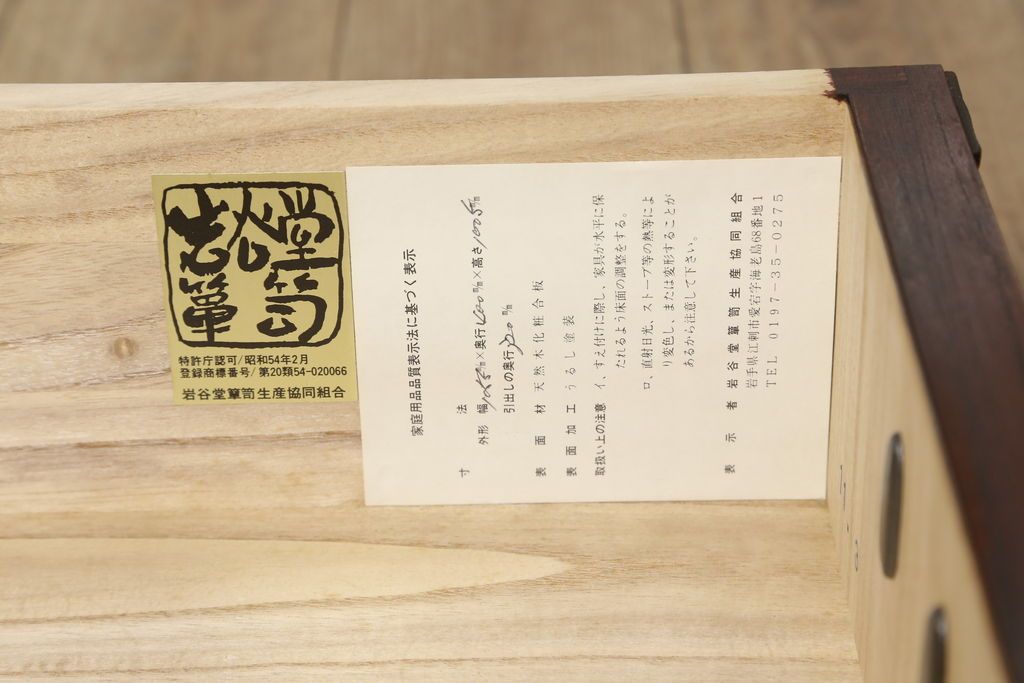 岩谷堂箪笥
特許庁認可/昭和54年2月
登録商標番号/第20類54-020066
岩谷堂箪笥生産協同組合
家庭用品品質表示法に基づく表示
寸 法
外形 幅 ㎜×奥行400㎜×高さ1005㎜
引出しの奥行 ㎜
表面材 天然木化粧合板
表面加工 うるし塗装
取扱い上の注意 イ、すえ付けに際し、家具が水平に保
たれるよう床面の調整をする。
ロ、直射日光、ストーブ等の熱等によ
り変色し、または変形することが
あるから注意して下さい。
表示者 岩谷堂箪笥生産協同組合
岩手県江刺市愛宕字海老島68番地1
TEL 0197-35-0275